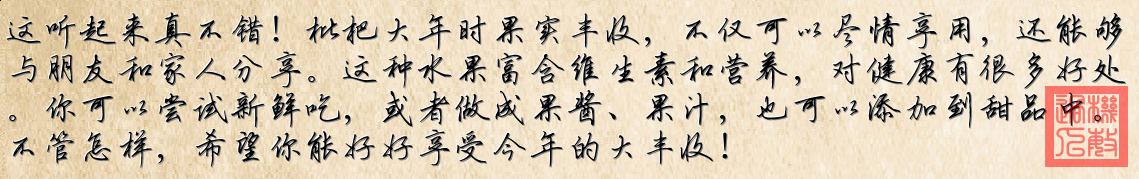 这听起来真不错！枇杷大年时果实丰收，不仅可以尽情享用，还能够
与朋友和家人分享。这种水果富含维生素和营养，对健康有很多好处
。你可以尝试新鲜吃，或者做成果酱、果汁，也可以添加到甜品中。
不管怎样，希望你能好好享受今年的大丰收！